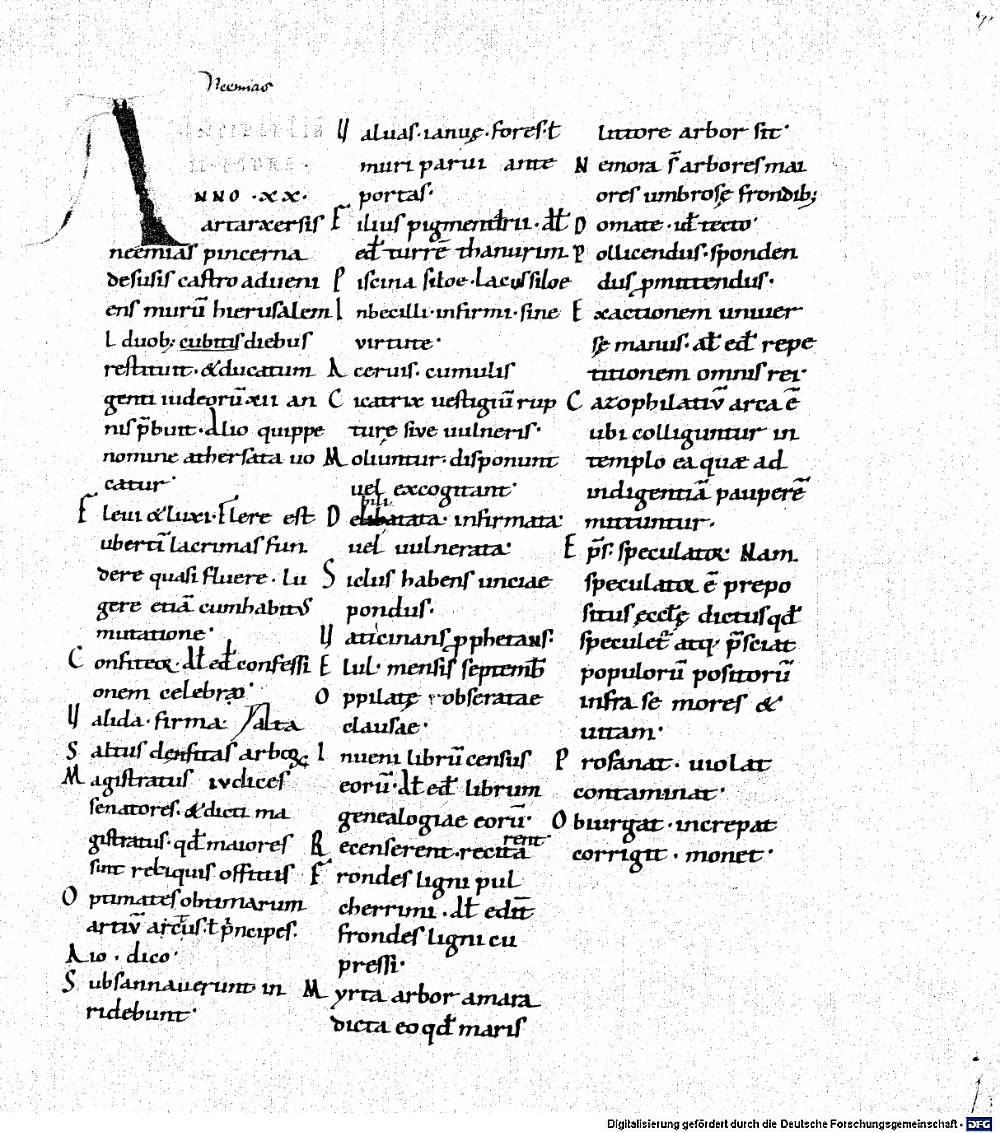 Neemias
NNO · XX ·
artarxersis
neemias pincerna
desusis castro adueni
ens murū hierusalem
L duob; cubitis diebus
restituit · & ducatum
genti iudeorū xii an
nis p̄buit · Alio quippe
nomine athersata uo
catur ·
Fleui & luxi · Flere est
ubertī lacrimas fun
dere quasi fluere · Lu
gere etiā cum habitus
mutatione ·
Confiteor · al ed confessi
onem celebrāo ·
Ualida · firma
Saltus densitas arborę
Magistratus iudices
senatores · & dicti ma
gistratus · qđ maiores
sint reliquis offitiis
Optimates obtimarum
artiū · ł p̄ncipes ·
Aio · dico ·
Subsannauerunt in
ridebunt ·
Ualuas · ianuę · fores · ł
muri parui ante
portas ·
Filius pigmentarii · ał
eđ turrē thanurim
Piscina siloe · Lacus siloe
Inbecilli · infirmi · sine
uirtute ·
Aceruis · cumulis
Cicatrix uestigiū rup
ture siue uulneris ·
Moliuntur · disponunt
uel excogitant ·
bili
De tata · infirmata
uel uulnerata ·
Siclus habens unciae
pondus ·
Uaticinans prophetans ·
Elul · mensis septemb̄
Oppilatę obseratae
clausae ·
Inueni librū census
eorū · ał eđ librum
genealogiae eorū ·
rent
Recenserent · recita
Frondes ligni pul
cherrimi · ał edit̄
frondes ligni cu
pressi ·
Myrta arbor amara
dicta eo qđ maris
littore arbor sit ·
Nemora s̄ arbores mai
ores umbrosę frondib;
Domate · iđ tecto ·
Pollicendus · sponden
dus promittendus ·
Exactionem uniuer
sę manus · ał eđ repe
titionem omnis rei ·
Cazophilatiū arca ē
ubi colliguntur in
templo ea quæ ad
indigentiā pauperē
mittuntur ·
Ep̄s · speculator · Nam
speculator ē prepo
situs ęcclę dictus qđ
speculet̄ atq; p̄sciat
populorū positorū
infra se mores &
uitam ·
Profanat · uiolat
contaminat ·
Obiurgat · increpat
corrigit · monet ·
Digitalisierung gefördert durch die Deutsche Forschungsgemeinschaft - DFG